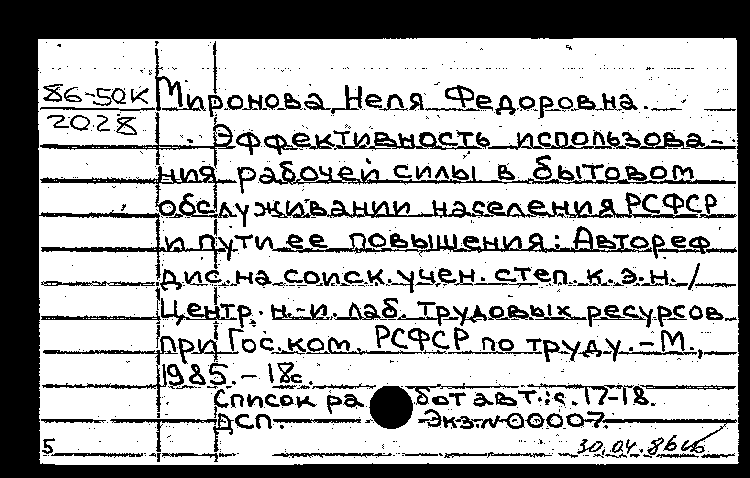 86-5ДК Миронова, Неля Федоровна.
2028
Эффективность использова-
ния рабочей силы в бытовом
обслуживании населения РСФСР
и пути ее повышения: Автореф
дис. на соиск. учен. степ. к.э.н. /
Центр. н.-и. лаб. трудовых ресурсов
при Гос. ком. РСФСР по труду. - М.,
1985. - 18с.
Список работ авт.: с. 17-18.
ДСП. Экз. N 00007.
5 30.04.86